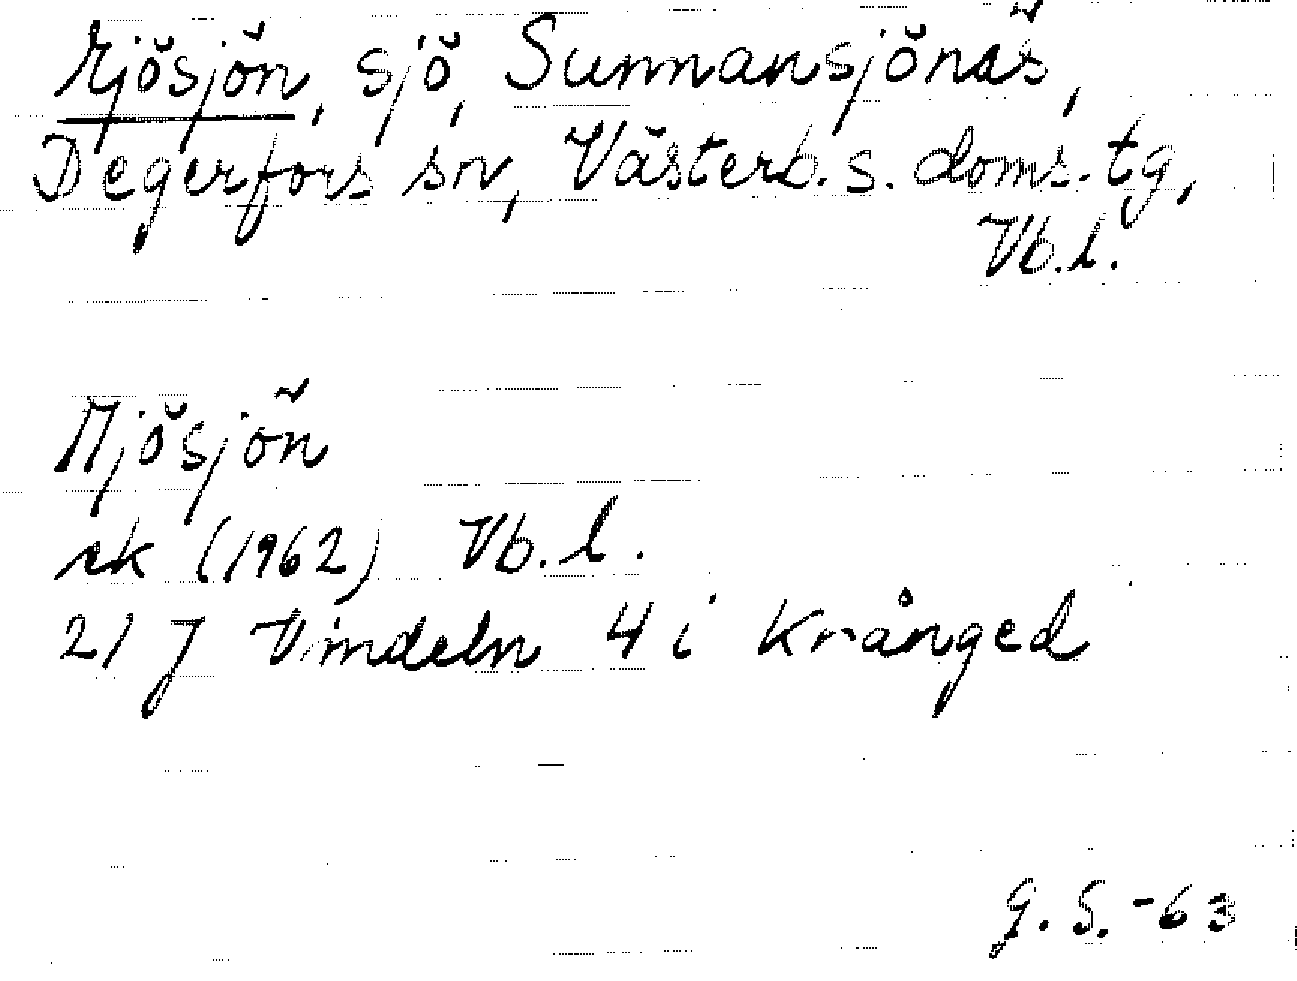 Mjösjön, sjö, Sunnansjönäs,
Degerfors sn, Västerb. s. doms. tg,
Vb. l.
Mjösjön
ek (1962) Vb. l.
21 J Vindeln 4 i Krånged
G. S. -63